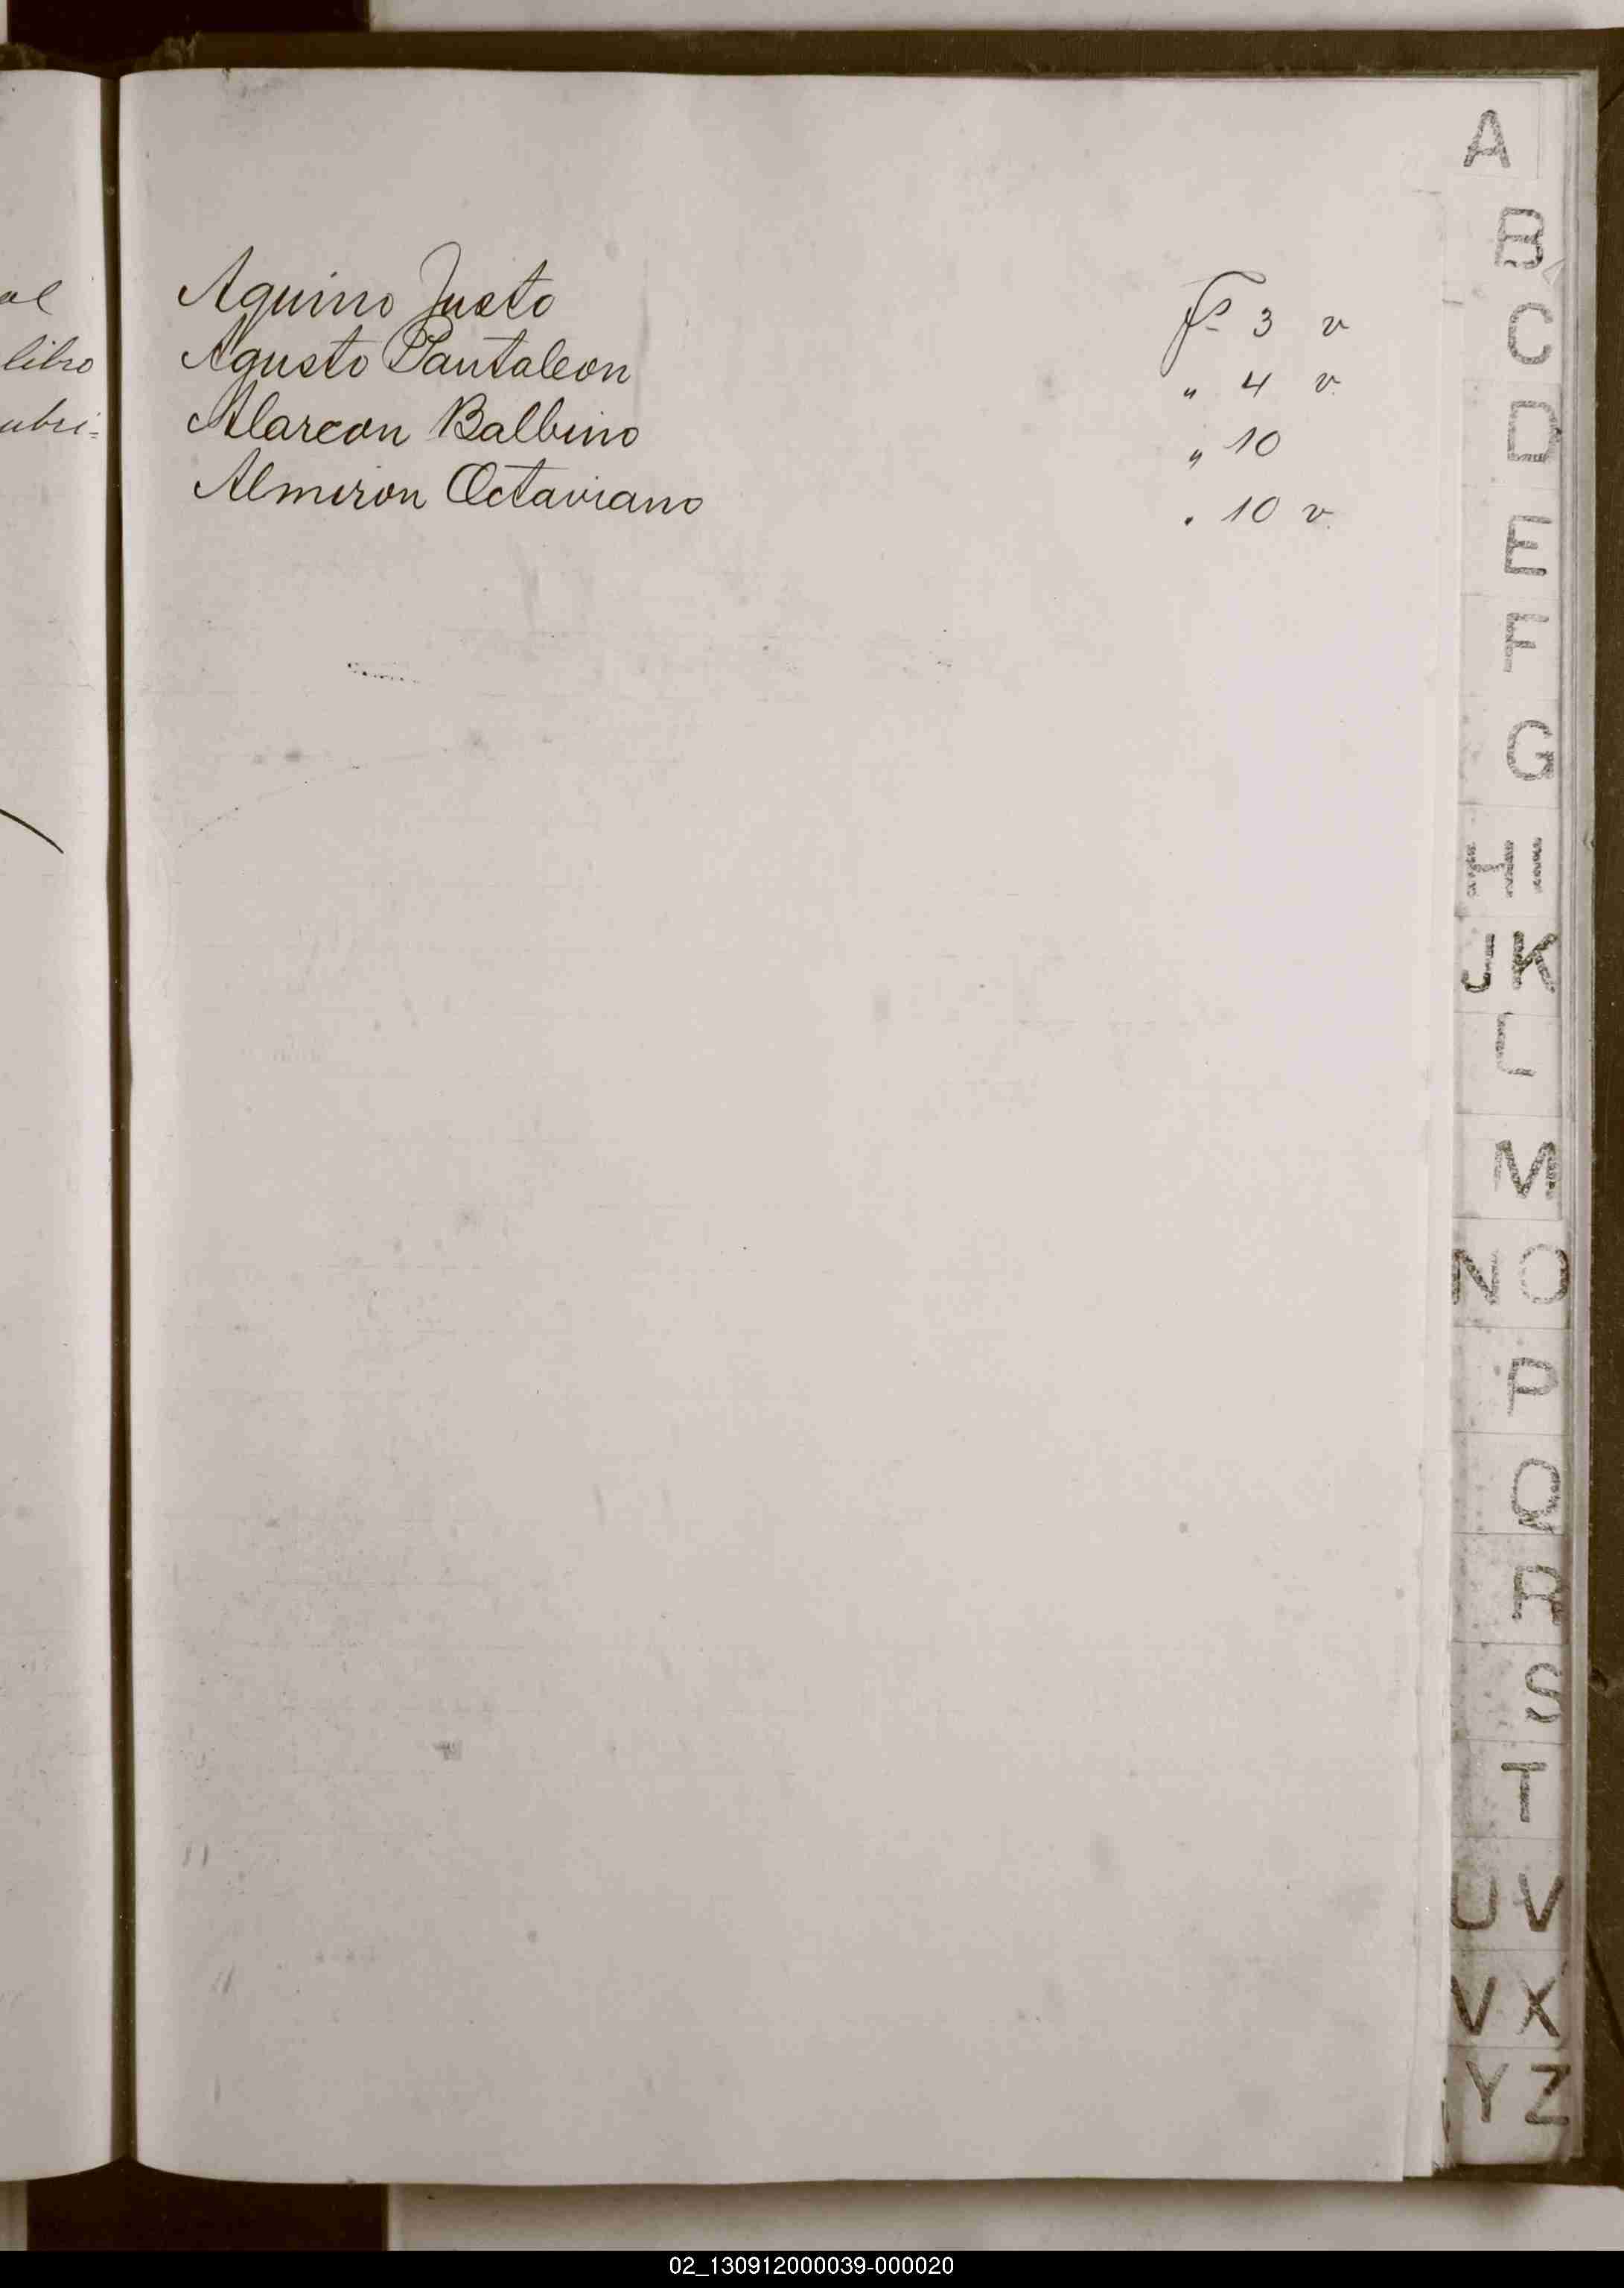 al
libro
ubri=
Aquino Justo Fº 3 v
Agusto Pantaleon " 4 v.
Alarcon Balbino " 10
Almiron Octaviano " 10 v.
A
B
C
D
E
F
G
HI
JK
L
M
NO
P
Q
R
S
T
UV
VX
YZ
02_130912000039-000020